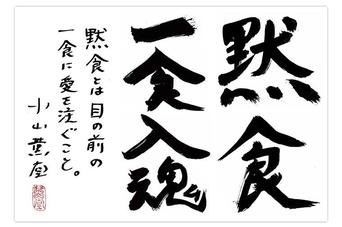 黙食
一食入魂
黙食とは目の前の
一食に愛を注ぐこと。
小山薫堂